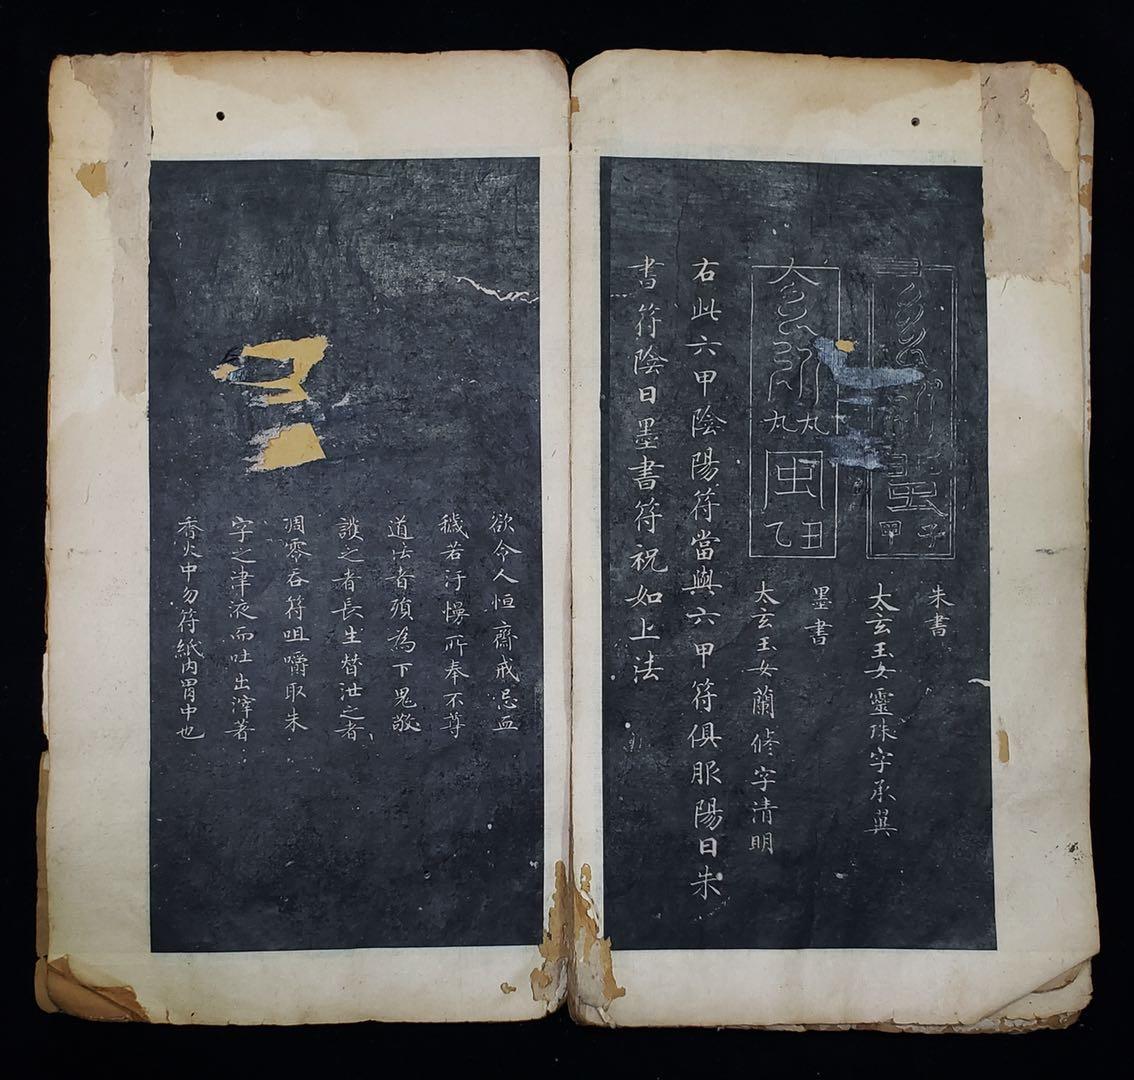 朱書
太玄玉女靈珠字承翼
子甲
墨書
太玄玉女蘭修字清明
丑乙
右此六甲陰陽符當與六甲符俱服陽日朱
書符陰日墨書符祝如上法
欲令人恒齋戒忌血
穢若汙慢所奉不尊
道法者殞為下鬼敬
護之者長生替泄之者
凋零吞符咀嚼取朱
字之津液而吐出滓著
香火中勿符紙內胃中也